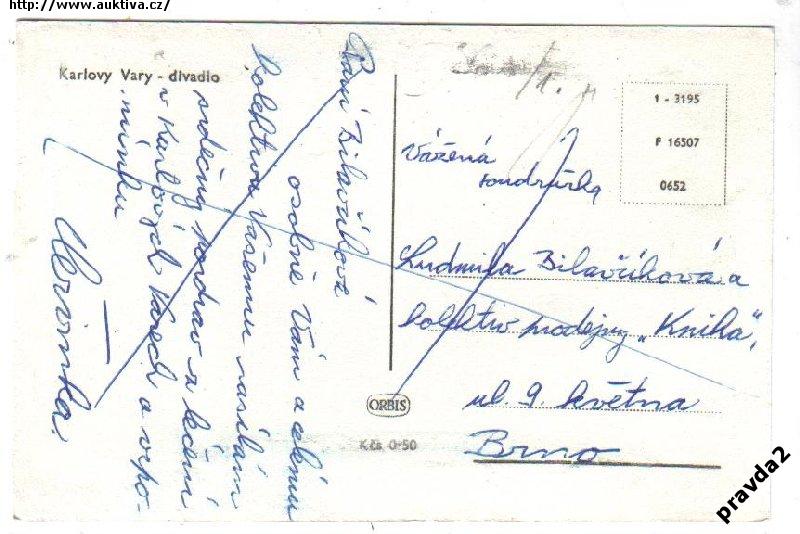 http://www.auktiva.cz/
Karlovy Vary - divadlo
Paní Bilavčíková
osobně Vám a celému
kolektivu Vašemu zasílám
srdečný pozdrav z léčení
v Karlových Varech a vzpo-
mínku
1 - 3195
F 16507
0652
Vážená
soudružka
Ludmila Bilavčíková a
kolektiv prodejny „Kniha"
ul. 9. května
Brno
ORBIS
Kčs 0·50
pravda2